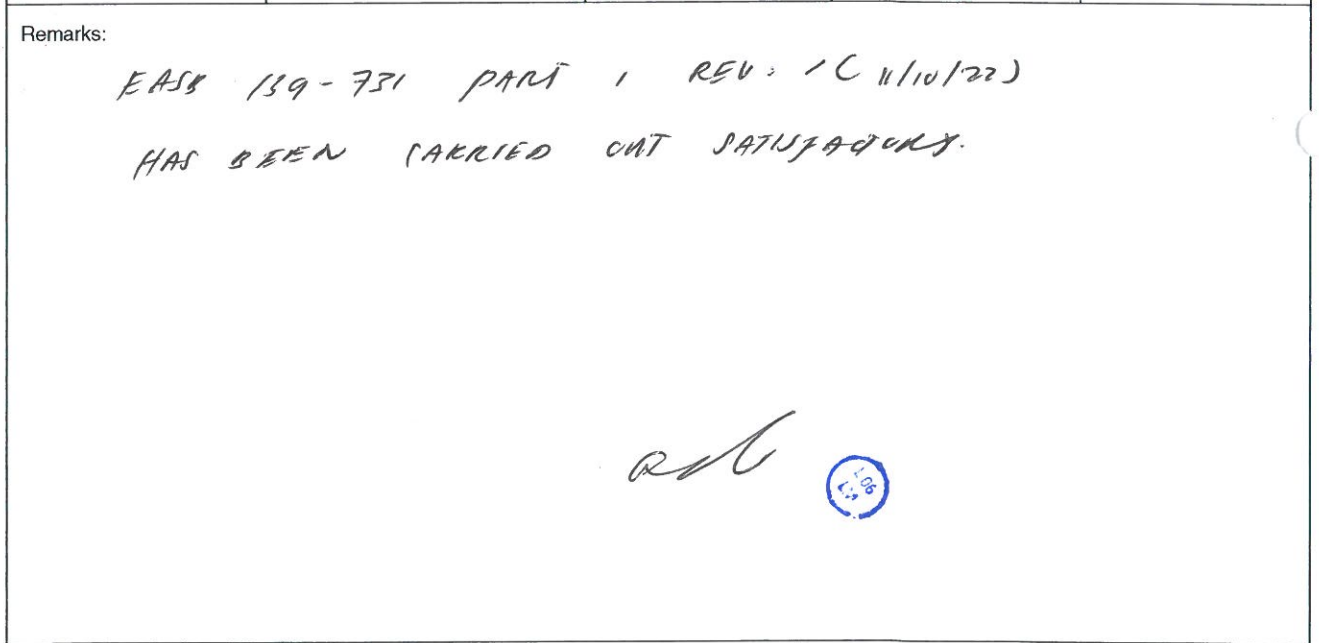 Remarks:
EASB 139-731 PART 1 REV: 1 ( 11/10/22)
HAS BEEN CARRIED OUT SATISFACTORY.
L06